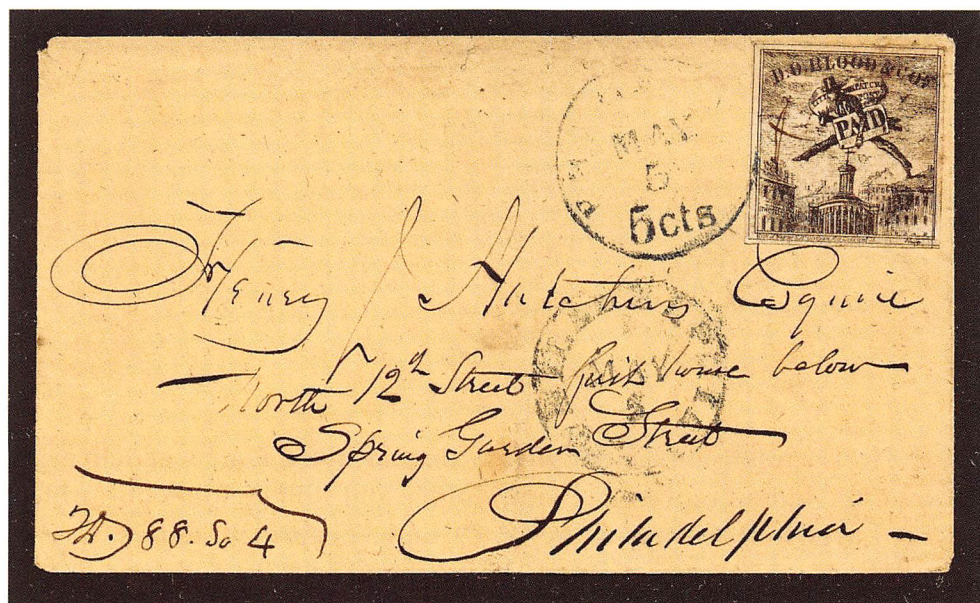 D.O. BLOOD & Co's
PAID
MAY
5
5cts
Henry J Hutchins Esquire
North 12th Street first house below
Spring Garden Street
Philadelphia
MAY
5
88. So 4